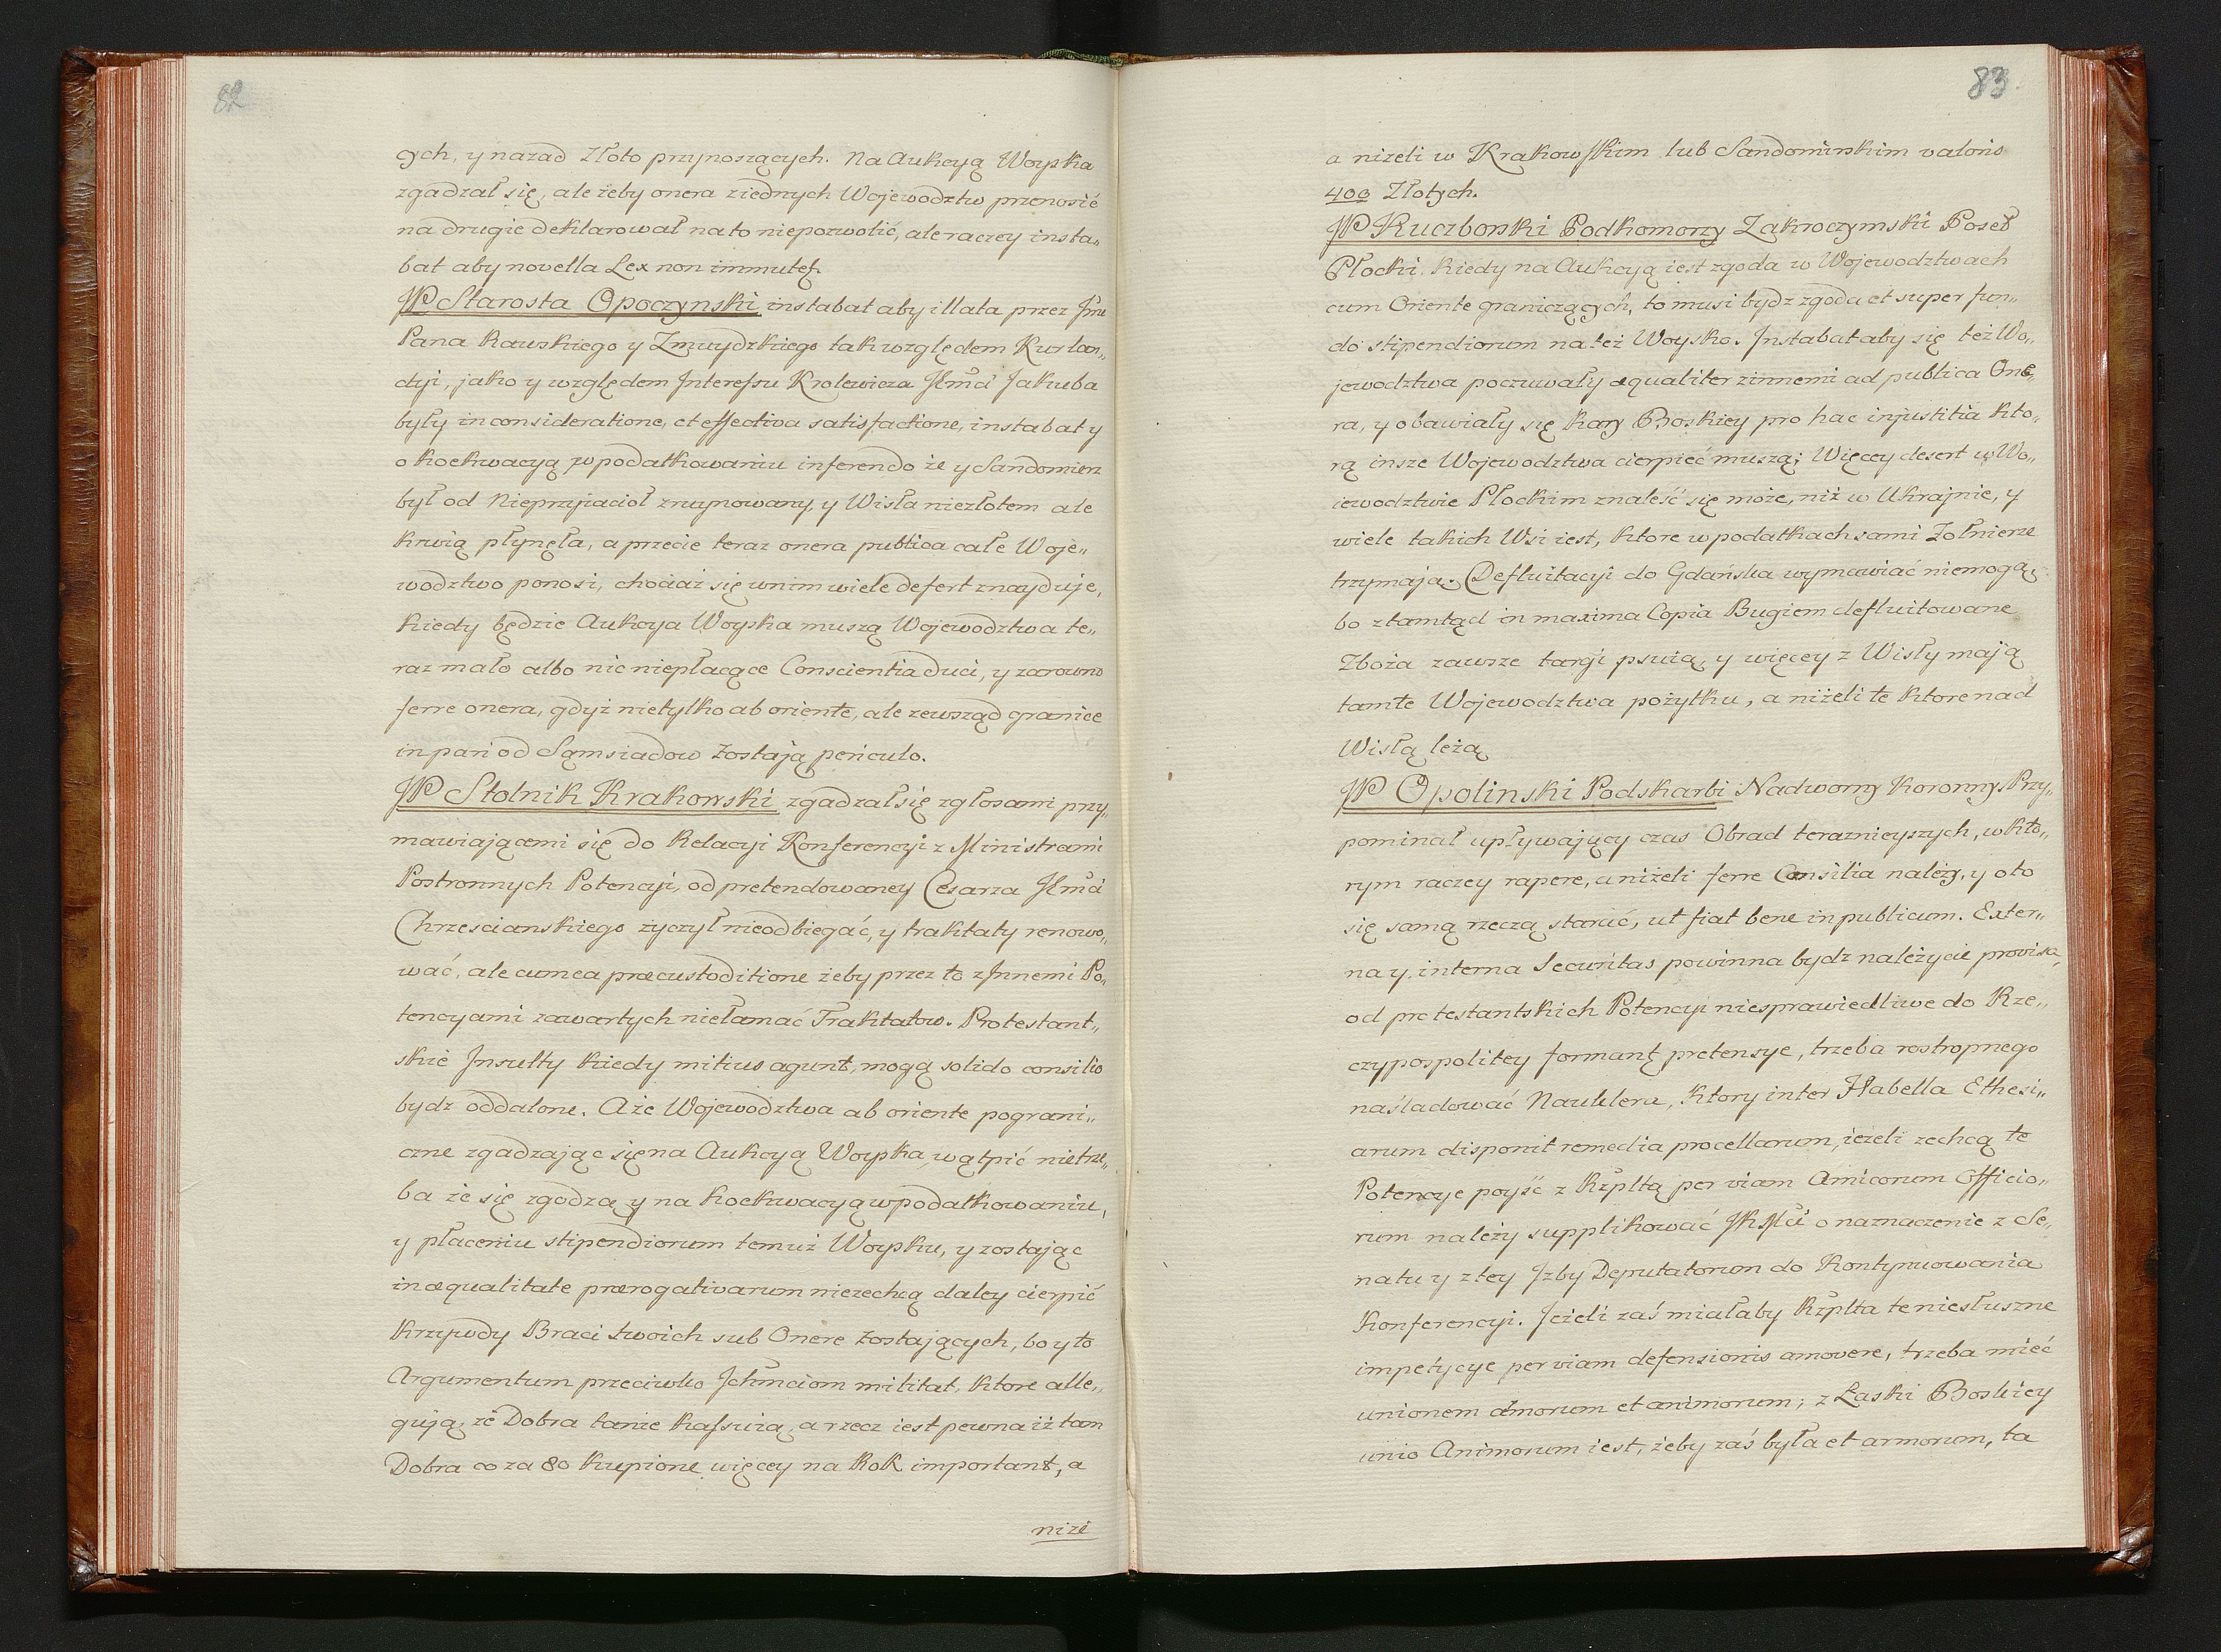 82
cych, y nazad Złoto przynoszących. Na Aukcyą Woyska
zgadzał się, ale żeby onera ziednych Wojewodztw przenosić
na drugie deklarował na to niepozwolić, ale raczey insta„
bat aby novella Lex non immutet.
JP Starosta Opoczynski instabat aby illata przez Jmć
Pana Rawskiego y Zmuydzkiego tak względem Kurlan„
dyi, jako y względem Interessu Krolewicza JKmći Jakuba
były in consideratione, et effectiva satisfactione, instabat y
o koekwacyą w podatkowaniu inferendo że y Sandomierz
był od Nieprzyiacioł zruynowany, y Wisła niezłotem ale
krwią płynęła, a przecie teraz onera publica całe Woje„
wodztwo ponosi, chociaż się wnim wiele desert znayduje,
kiedy będzie Aukcya Woyska muszą Wojewodztwa te„
raz mało albo nic niepłacące Conscientia duci, y zarowno
ferre onera, gdyż nietylko ab oriente, ale zewsząd granice
in pari od Sąmsiadow zostają periculo.
JP Stolnik Krakowski zgadzał się zgłosami przy„
mawiającemi się do Relacyi Konferencyi z Ministrami
Postronnych Potencyi, od pretendowaney Cesarza JKmći
Chrzescianskiego zyczył nieodbiegać, y traktaty renowo„
wać, ale cum ea præcustoditione żeby przez to z Innemi Po„
tencyami zawartych niełamać Traktatow. Protestant„
skie Insulty kiedy mitius agunt, mogą solido consilio
bydz oddalone. Aże Wojewodztwa ab oriente pograni„
czne zgadzając się na Aukcyą Woyska, wątpić nietrze„
ba że się zgodzą y na koekwacyą w podatkowaniu,
y płaceniu stipendiorum temuż Woysku, y zostając
in æqualitate prærogativarum niezechcą daley cierpić
krzywdy Braci swoich sub Onere zostających, bo y to
Argumentum przeciwko Ichmciom militat, ktore alle„
gują, że Dobra tanie kassuią, a rzecz iest pewna iż tam
Dobra co za 80 kupione więcey na Rok important, a
niże
83.
a niżeli w Krakowskim lub Sandomirskim valoris
400 Złotych.
JP Kuczborski Podkomorzy Zakroczymski Poseł
Płocki. kiedy na Aukcyą iest zgoda w Wojewodztwach
cum Oriente graniczących, to musi bydz zgoda et super fun„
do stipendiorum na też Woysko. Instabat aby się też Wo„
jewodztwa poczuwały æqualiter zinnemi ad publica One„
ra, y obawiały się kary Boskiey pro hac injustitia kto„
rą insze Wojewodztwa cierpieć muszą; Więcey desert w Wo„
iewodztwie Płockim znaleść się może, niż w Ukrajnie, y
wiele takich Wsi iest, ktore w podatkach sami Żołnierze
trzymają. Defluitacyi do Gdańska wymawiać niemogą,
bo ztamtąd in maxima Copia Bugiem defluitowane
Zboża zawsze targi psuią, y więcey z Wisły mają
tamte Wojewodztwa pożytku, a niżeli te ktore nad
Wisłą leżą
JP Opolinski Podskarbi Nadworny Koronny. Przy„
pominał upływający czas Obrad teraznieyszych, w kto„
rym raczey rapere, a niżeli ferre Consilia należy, y oto
się samą rzeczą starać, ut fiat bene in publicum. Exter„
na y interna Securitas powinna bydz należycie provisa,
od protestantskich Potencyi niesprawiedliwe do Rze„
czypospolitey formant pretensye, trzeba rostropnego
naśladować Nauklera, ktory inter Flabella Ethesi„
arum disponit remedia procellarum, ieżeli zechcą te
Potencye poyść z Rzpltą per viam Amicorum Officio„
rum należy supplikować JKMći o naznaczenie z Se„
natu y z tey Izby Deputatorum do kontynuowania
Konferencyi. Jeżeli zaś miałaby Rzplta te niesłuszne
impetycye per viam defensionis amovere, trzeba mieć
unionem armorum et animorum; z Łaski Boskiey
unio Animorum iest, żeby zaś była et armorum, ta